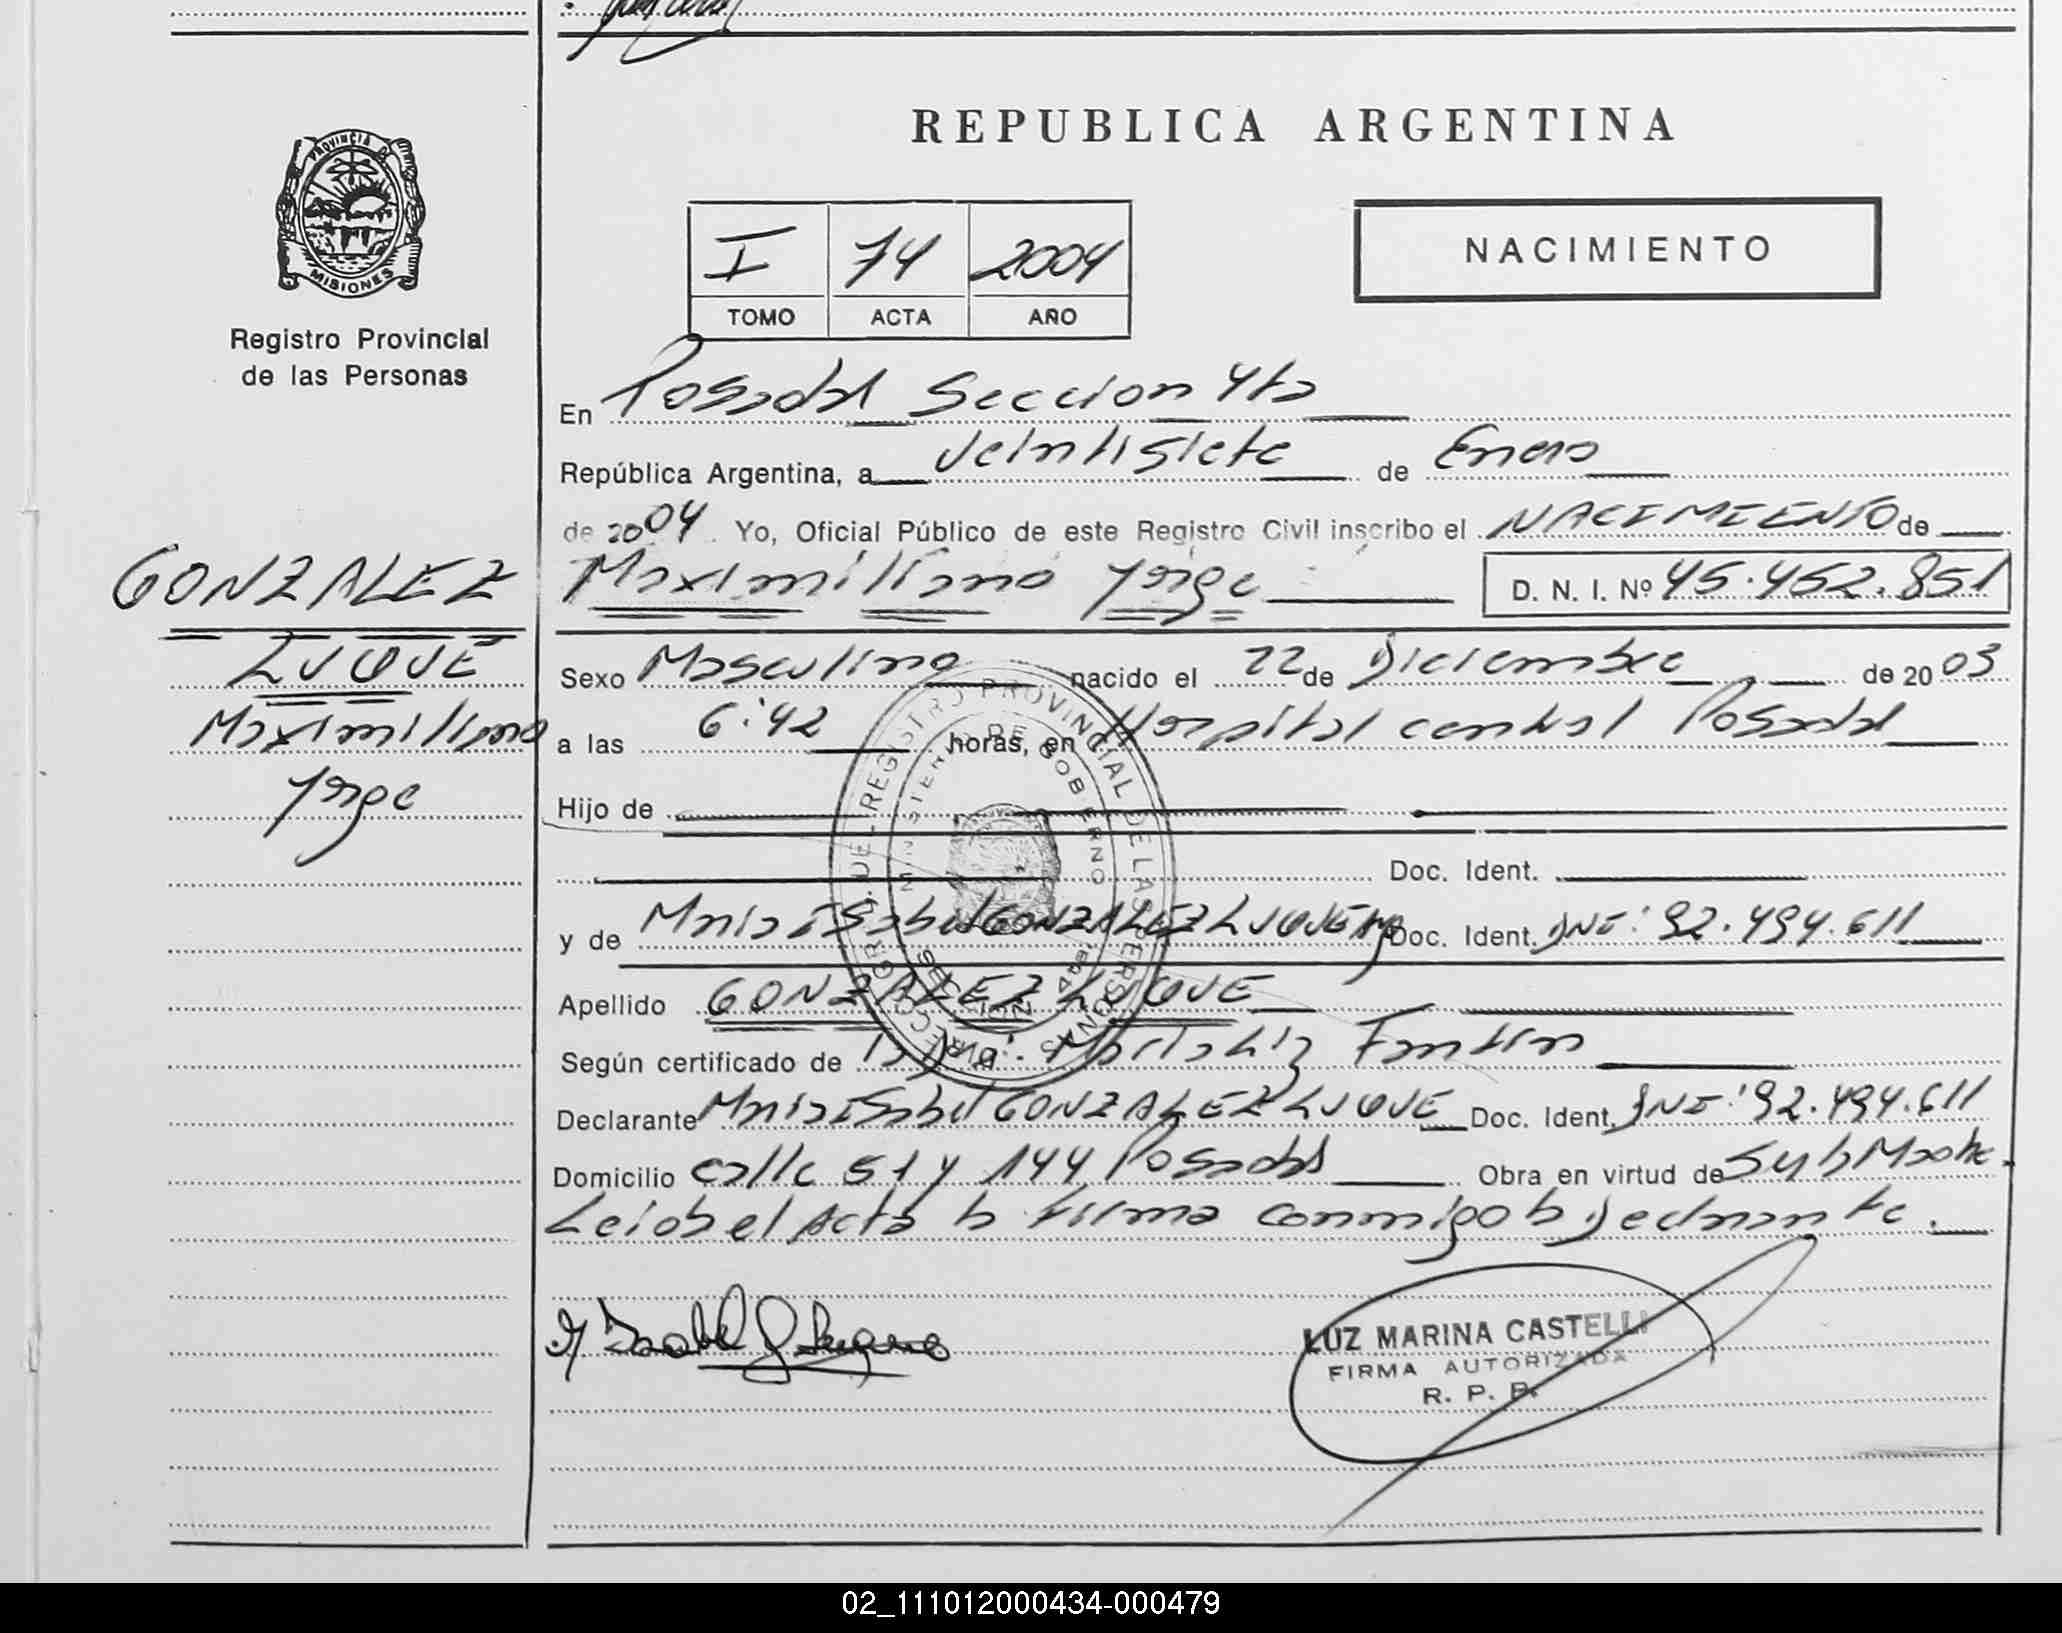 REPUBLICA ARGENTINA
PROVINCIA DE
MISIONES
Registro Provincial
de las Personas
I 74 2004
TOMO ACTA AÑO
NACIMIENTO
En Posadas Seccion 4ta
República Argentina, a veintisiete de Enero
de 2004. Yo, Oficial Público de este Registro Civil inscribo el NACIMIENTO de
GONZALEZ
LUQUE
Maximiliano
Jorge
Maximiliano Jorge D. N. I. Nº 45.452.851
Sexo Masculino nacido el 22 de Diciembre de 2003
a las 6:42 horas, en Hospital central Posadas
Hijo de
Doc. Ident.
y de Maria Isabel GONZALEZ LUQUE Doc. Ident. DNI: 92.494.611
Apellido GONZALEZ LUQUE
Según certificado de
Declarante Maria Isabel GONZALEZ LUQUE Doc. Ident. DNI: 92.494.611
Domicilio calle 51 y 144 Posadas Obra en virtud de Madre
Leida el Acta la firma conmigo la declarante.
LUZ MARINA CASTELLI
FIRMA AUTORIZADA
R. P. P.
REGISTRO PROVINCIAL DE LAS PERSONAS
MINISTERIO DE GOBIERNO
02_111012000434-000479